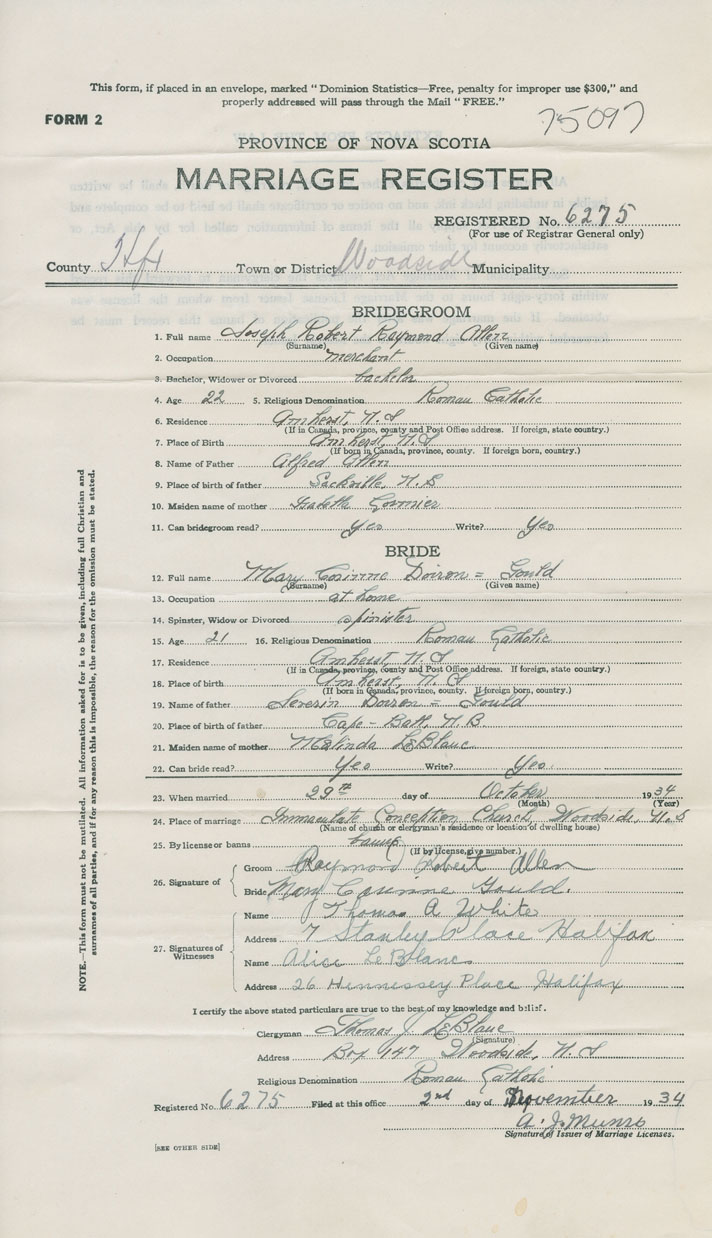 This form, if placed in an envelope, marked "Dominion Statistics—Free, penalty for improper use $300," and
properly addressed will pass through the Mail "FREE."
FORM 2
75097
PROVINCE OF NOVA SCOTIA
MARRIAGE REGISTER
REGISTERED No. 6275
(For use of Registrar General only)
County Hfx Town or District Woodside Municipality
BRIDEGROOM
1. Full name Joseph Robert Raymond Allen
(Surname) (Given name)
2. Occupation merchant
3. Bachelor, Widower or Divorced bachelor
4. Age 22 5. Religious Denomination Roman Catholic
6. Residence Amherst, N.S
(If in Canada, province, county and Post Office address. If foreign, state country.)
7. Place of Birth Amherst, N.S
(If born in Canada, province, county. If foreign born, country.)
8. Name of Father Alfred Allen
9. Place of birth of father Sackville, N.B
10. Maiden name of mother Isabelle Cormier
11. Can bridegroom read? Yes Write? Yes
BRIDE
12. Full name Mary Corinne Doiron = Gould
(Surname) (Given name)
13. Occupation at home
14. Spinster, Widow or Divorced spinister
15. Age 21 16. Religious Denomination Roman Catholic
17. Residence Amherst, N.S
(If in Canada, province, county and Post Office address. If foreign, state country.)
18. Place of birth Amherst, N.S
(If born in Canada, province, county. If foreign born, country.)
19. Name of father Severin Doiron = Gould
20. Place of birth of father Cape-Bath, N.B
21. Maiden name of mother Malinda LeBlanc
22. Can bride read? Yes Write? Yes
23. When married 29th day of October 1934
(Month) (Year)
24. Place of marriage Immaculate Conception Church, Woodside, N.S
(Name of church or clergyman's residence or location of dwelling house)
25. By license or banns banns
(If by license, give number.)
26. Signature of
Groom Raymond Robert Allen
Bride Mary Corinne Gould.
27. Signatures of Witnesses
Name Thomas A White
Address 7 Stanley Place Halifax
Name Alice LeBlanc
Address 26 Hennessey Place Halifax
I certify the above stated particulars are true to the best of my knowledge and belief.
Clergyman Thomas J LeBlanc
(Signature)
Address Box 147 Woodside, N.S
Religious Denomination Roman Catholic
Registered No. 6275 Filed at this office 2nd day of November 1934
A. J. Munro
Signature of Issuer of Marriage Licenses.
[SEE OTHER SIDE]
NOTE.—This form must not be mutilated. All information asked for is to be given, including full Christian and
surnames of all parties, and if for any reason this is impossible, the reason for the omission must be stated.